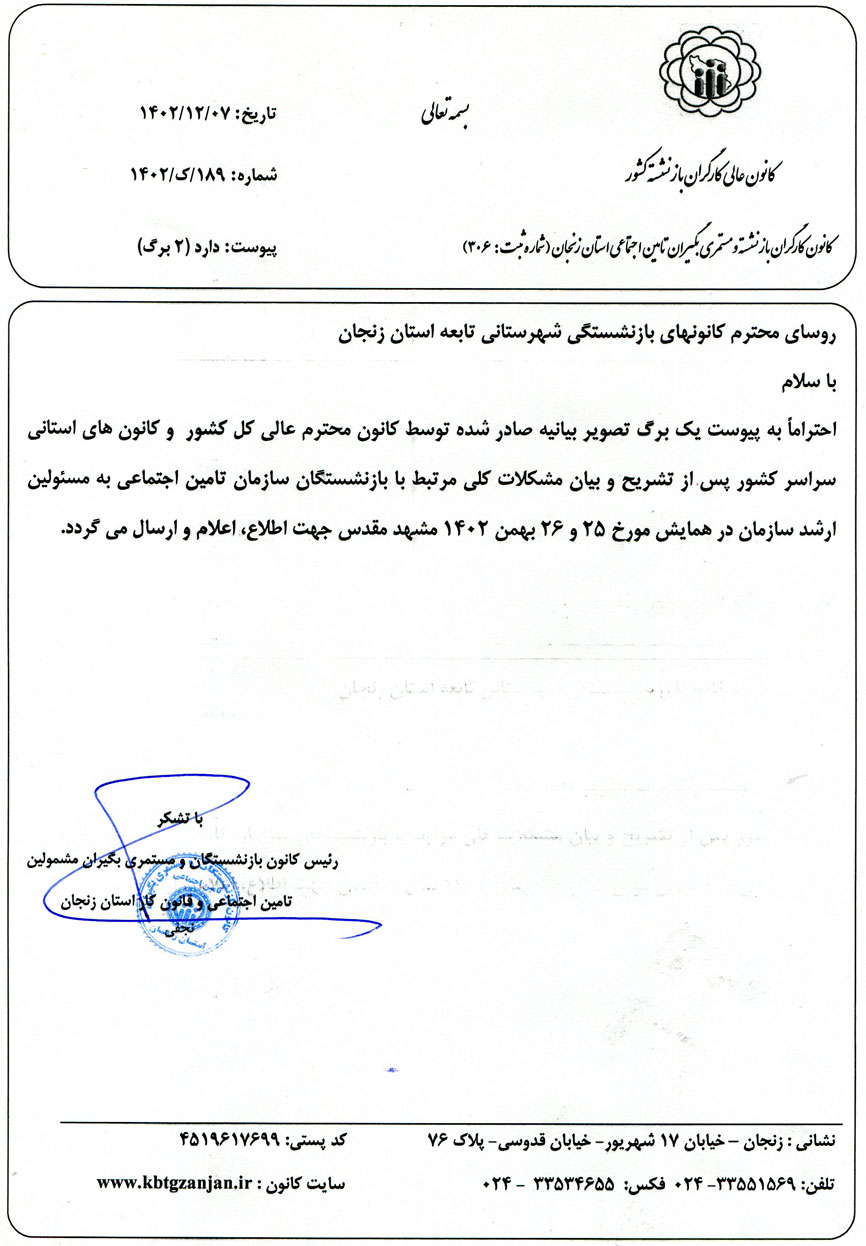 بسمه تعالی
تاریخ: ۱۴۰۲/۱۲/۰۷
کانون عالی کارگران بازنشسته کشور
شماره: ۱۸۹/ک/۱۴۰۲
کانون کارگران بازنشسته و مستمری بگیران تامین اجتماعی استان زنجان (شماره ثبت: ۳۰۶)
پیوست: دارد (۲ برگ)
روسای محترم کانونهای بازنشستگی شهرستانی تابعه استان زنجان
با سلام
احتراماً به پیوست یک برگ تصویر بیانیه صادر شده توسط کانون محترم عالی کل کشور و کانون های استانی
سراسر کشور پس از تشریح و بیان مشکلات کلی مرتبط با بازنشستگان سازمان تامین اجتماعی به مسئولین
ارشد سازمان در همایش مورخ ۲۵ و ۲۶ بهمن ۱۴۰۲ مشهد مقدس جهت اطلاع، اعلام و ارسال می گردد.
با تشکر
رئیس کانون بازنشستگان و مستمری بگیران مشمولین
تامین اجتماعی و قانون کار استان زنجان
نجفی
نشانی : زنجان – خیابان ۱۷ شهریور- خیابان قدوسی- پلاک ۷۶
کد پستی: ۴۵۱۹۶۱۷۶۹۹
تلفن: ۳۳۵۵۱۵۶۹- ۰۲۴ فکس: ۳۳۵۳۴۶۵۵ - ۰۲۴
سایت کانون : www.kbtgzanjan.ir